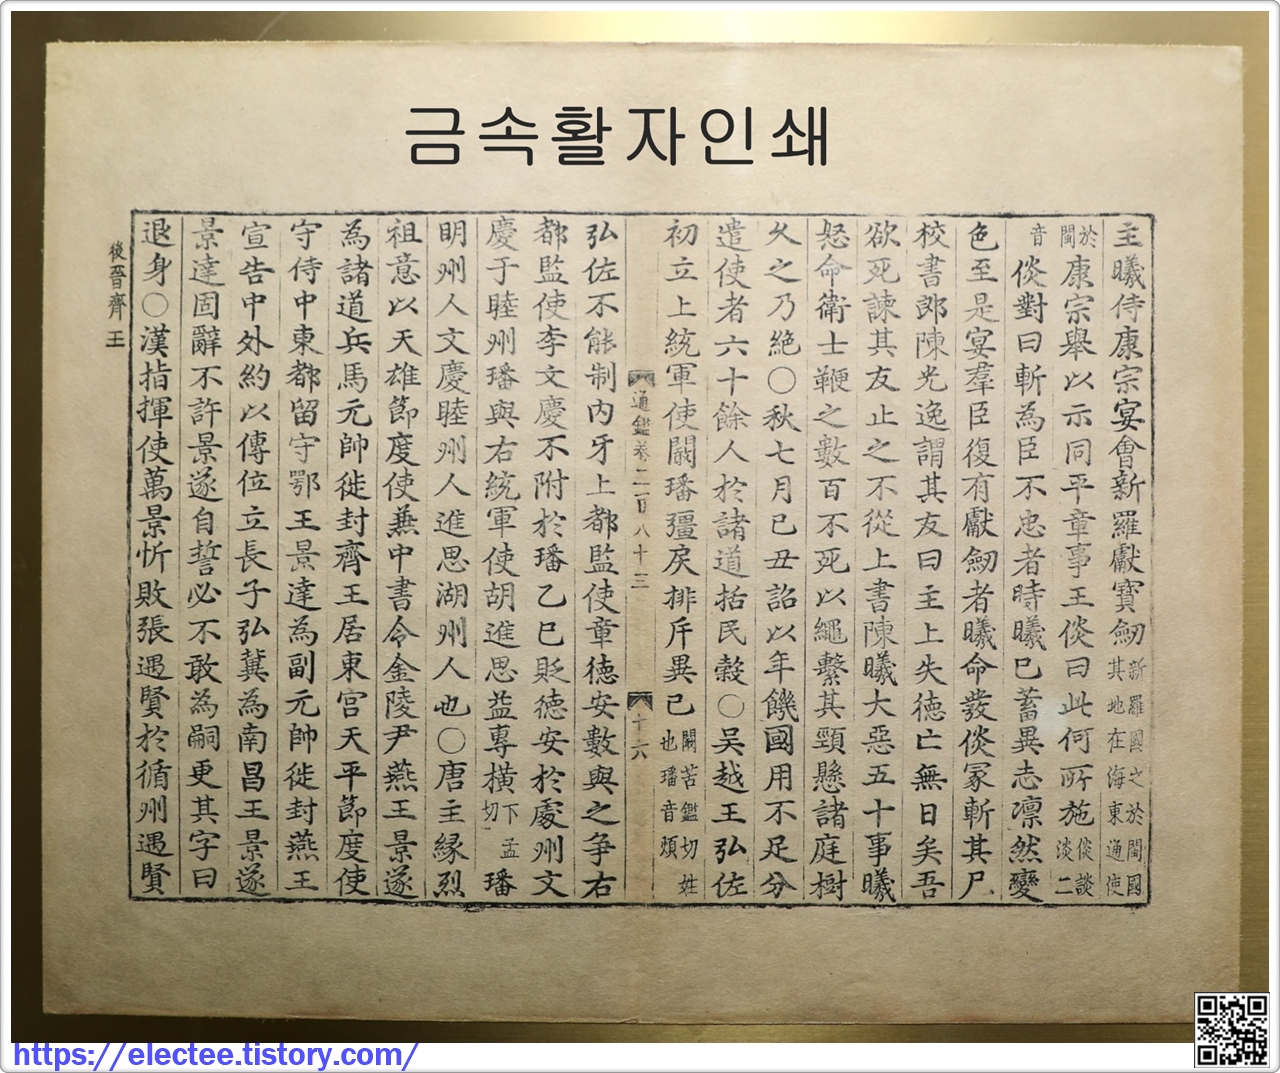 금속활자인쇄
主曦侍康宗宴會新羅獻寶劒新羅國之於閩國其地在海東通使
於閩康宗舉以示同平章事王倓曰此何所施倓談淡二
音倓對曰斬為臣不忠者時曦已蓄異志凛然變
色至是宴羣臣復有獻劒者曦命發倓冢斬其尸
校書郎陳光逸謂其友曰主上失德亡無日矣吾
欲死諫其友止之不從上書陳曦大惡五十事曦
怒命衛士鞭之數百不死以繩繫其頸懸諸庭樹
久之乃絶〇秋七月己丑詔以年饑國用不足分
遣使者六十餘人於諸道括民穀〇吳越王弘佐
初立上統軍使闞璠彊戾排斥異己闞苦鑑切姓也璠音煩
通鑑卷二百八十三
十六
弘佐不能制内牙上都監使章德安數與之争右
都監使李文慶不附於璠乙巳貶德安於處州文
慶于睦州璠與右統軍使胡進思益專横下孟切璠
明州人文慶睦州人進思湖州人也〇唐主緣烈
祖意以天雄節度使兼中書令金陵尹燕王景遂
為諸道兵馬元帥徙封齊王居東宫天平節度使
守侍中東都留守鄂王景達為副元帥徙封燕王
宣告中外約以傳位立長子弘冀為南昌王景遂
景達固辭不許景遂自誓必不敢為嗣更其字曰
退身〇漢指揮使萬景忻敗張遇賢於循州遇賢
後晉齊王
https://electee.tistory.com/